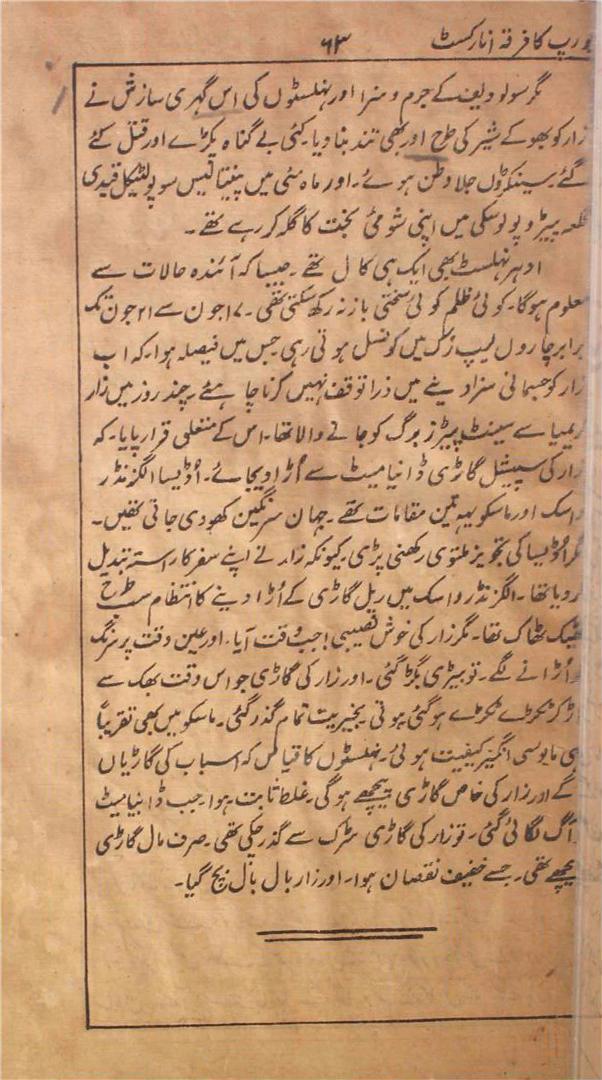 یورپ کا فرقہ انارکسٹ ۶۳
مگر سولودیف کے جرم و سزا اور نہلسٹوں کی اس گہری سازش نے
زار کو بھوکے شیر کی طرح اور بھی تند بنا دیا۔ کئی بے گناہ پکڑے اور قتل کئے
گئے۔ سینکڑوں جلا وطن ہوئے۔ اور ماہ مئی میں پنیتالیس سو پولٹیکل قیدی
قلعہ پیٹرو پولوسکی میں اپنی شومئی بخت کا گلہ کر رہے تھے۔
ادہر نہلسٹ بھی ایک ہی کال تھے۔ جیسا کہ آئندہ حالات سے
معلوم ہوگا۔ کوئی ظلم کوئی سختی باز نہ رکھ سکتی تھی۔ ۱۷ جون سے ۲۱ جون تک
برابر چاروں لیپ زک میں کونسل ہوتی رہی جس میں فیصلہ ہوا۔ کہ اب
زار کو جسمانی سزا دینے میں ذرا توقف نہیں کرنا چاہئے۔ چند روز میں زار
کریمیا سے سینٹ پیٹرز برگ کو جانے والا تھا۔ اس کے متعلق قرار پایا۔ کہ
زار کی سپیشل گاڑی ڈائنامیٹ سے اُڑا دیجائے۔ اُڈیسا الگزنڈر
واسک اور ماسکو یہ تین مقامات تھے۔ جہان سرنگین کھودی جاتی تھیں۔
مگر اُڈیسا کی تجویز ملتوی رکھنی پڑی۔ کیونکہ زار نے اپنے سفر کا راستہ تبدیل
کر دیا تھا۔ الگزنڈر واسک میں ریل گاڑی کے اُڑا دینے کا انتظام سب طرح
ٹھیک ٹھاک تھا۔ مگر زار کی خوش نصیبی! جب وقت آیا۔ اور عین وقت پر سرنگ
اُڑانے لگے۔ تو بیٹری بگڑ گئی۔ اور زار کی گاڑی جو اس وقت بھک سے
اڑ کر ٹکڑے ٹکڑے ہو گئی ہوتی۔ بخیریت تمام گذر گئی۔ ماسکو میں بھی تقریباً
یہی مایوسی انگیز کیفیت ہوئی۔ نہلسٹوں کا قیاس کہ اسباب کی گاڑیاں
آگے اور زار کی خاص گاڑی پیچھے ہوگی۔ غلط ثابت ہوا۔ جب ڈائنامیٹ
آگ لگائی گئی۔ تو زار کی گاڑی سڑک سے گذر چکی تھی۔ صرف مال گاڑی
پیچھے تھی۔ جسے خفیف نقصان ہوا۔ اور زار بال بال بچ گیا۔